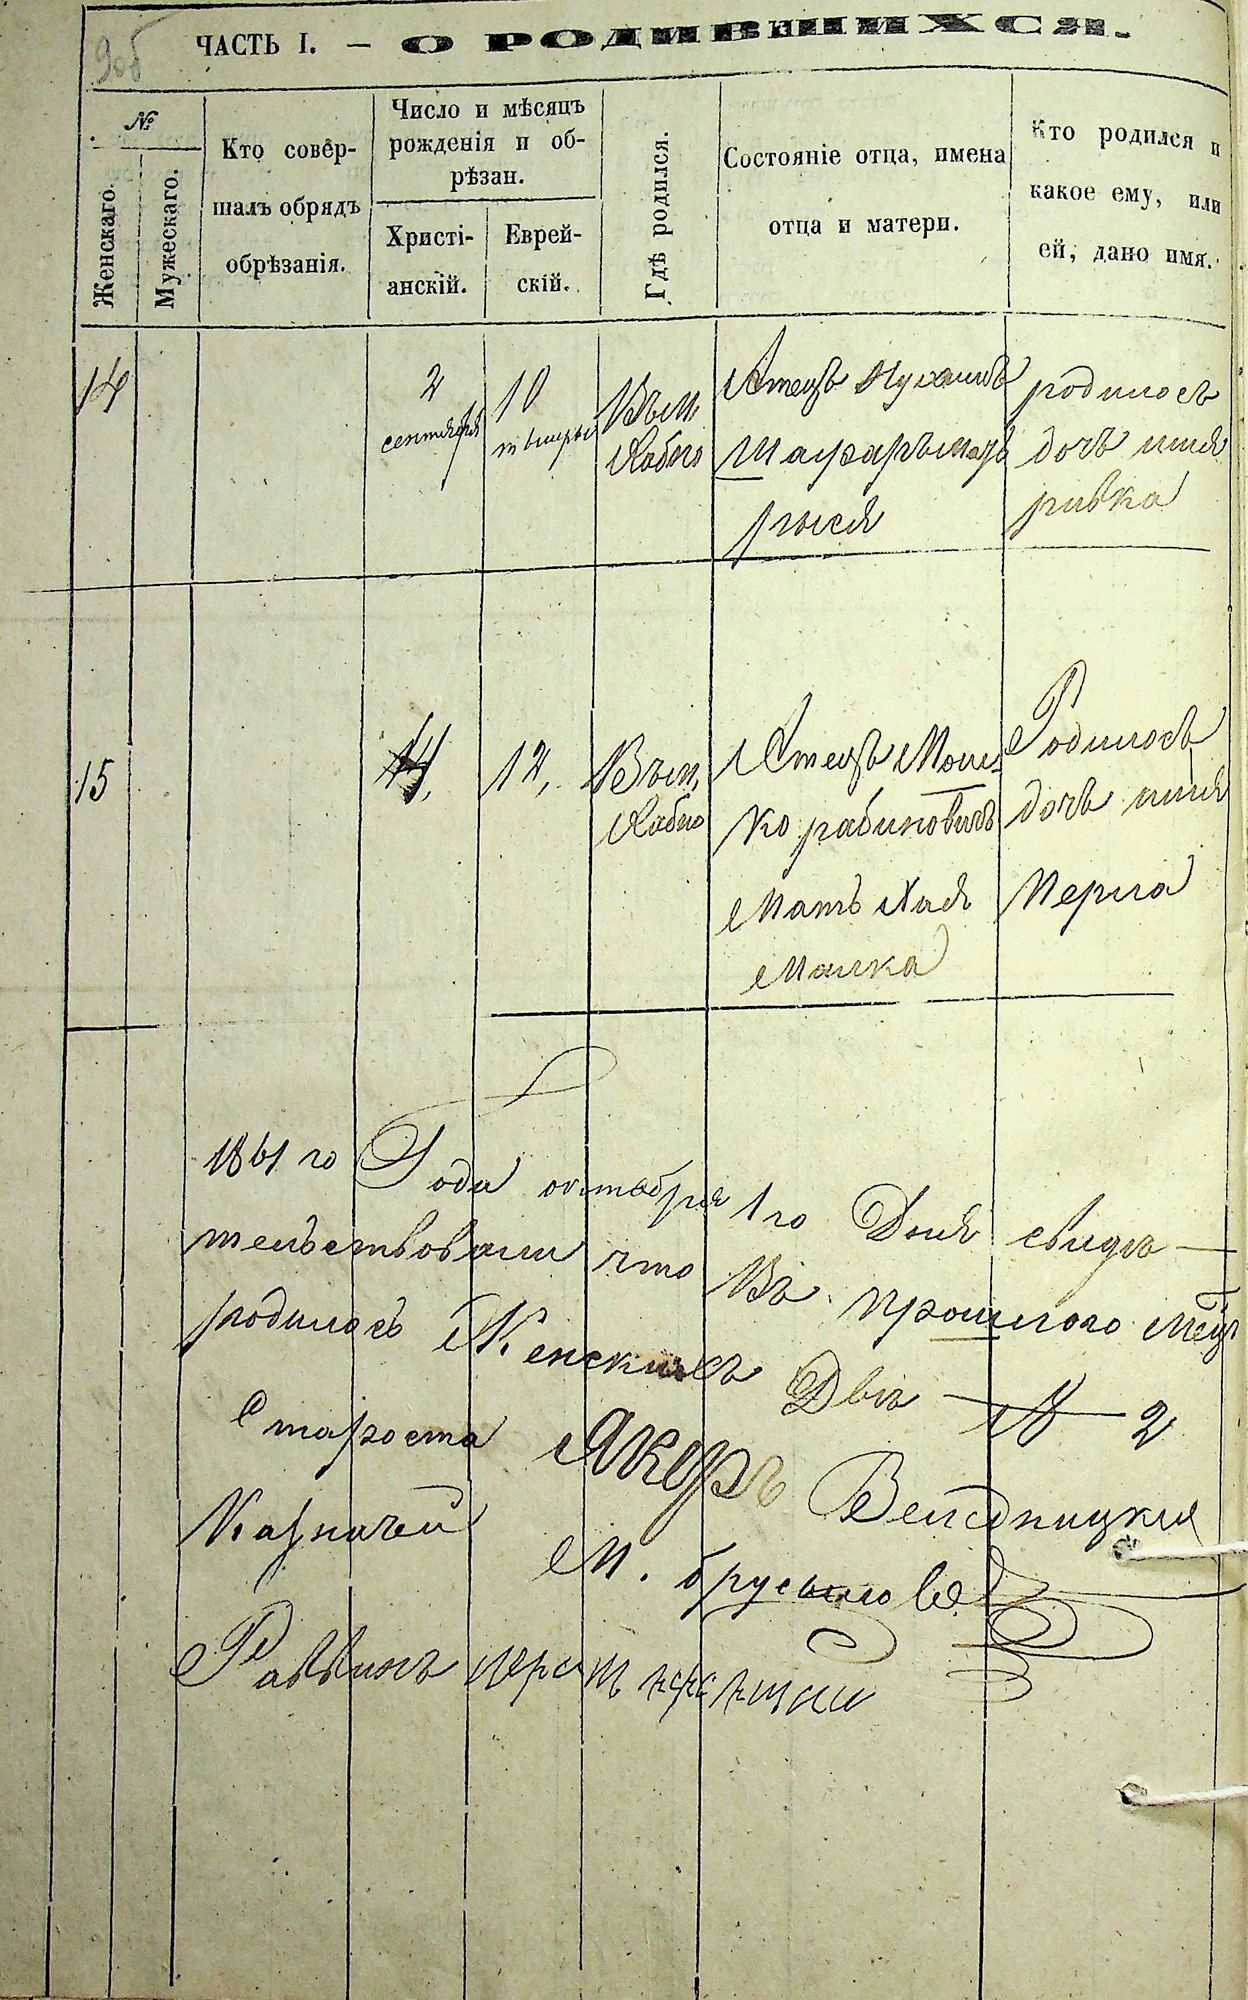 9об
ЧАСТЬ I. — О РОДИВШИХСЯ.
№
Женскаго.
Мужескаго.
Кто совер-
шалъ обрядъ
обрѣзанія.
Число и мѣсяцъ
рожденія и об-
рѣзан.
Христі-
анскій.
Еврей-
скій.
Гдѣ родился.
Состояніе отца, имена
отца и матери.
Кто родился и
какое ему, или
ей, дано имя.
14
2
сентября
10
Въ м,
Отецъ Нухимъ
мать
рыся
родилось
дочъ имя
ривка
15
14,
12,
Въ м,
Отецъ Мош-
ко рабиновичъ
Мать Хая
Малка
Родилось
дочъ имя
Перла
1861 го Года октября 1го Дня свидѣ —
тельствовали что Въ прошлого мец
родилось Женскихъ Двѣ — № 2
Староста
Казначей М.
Раввинъ